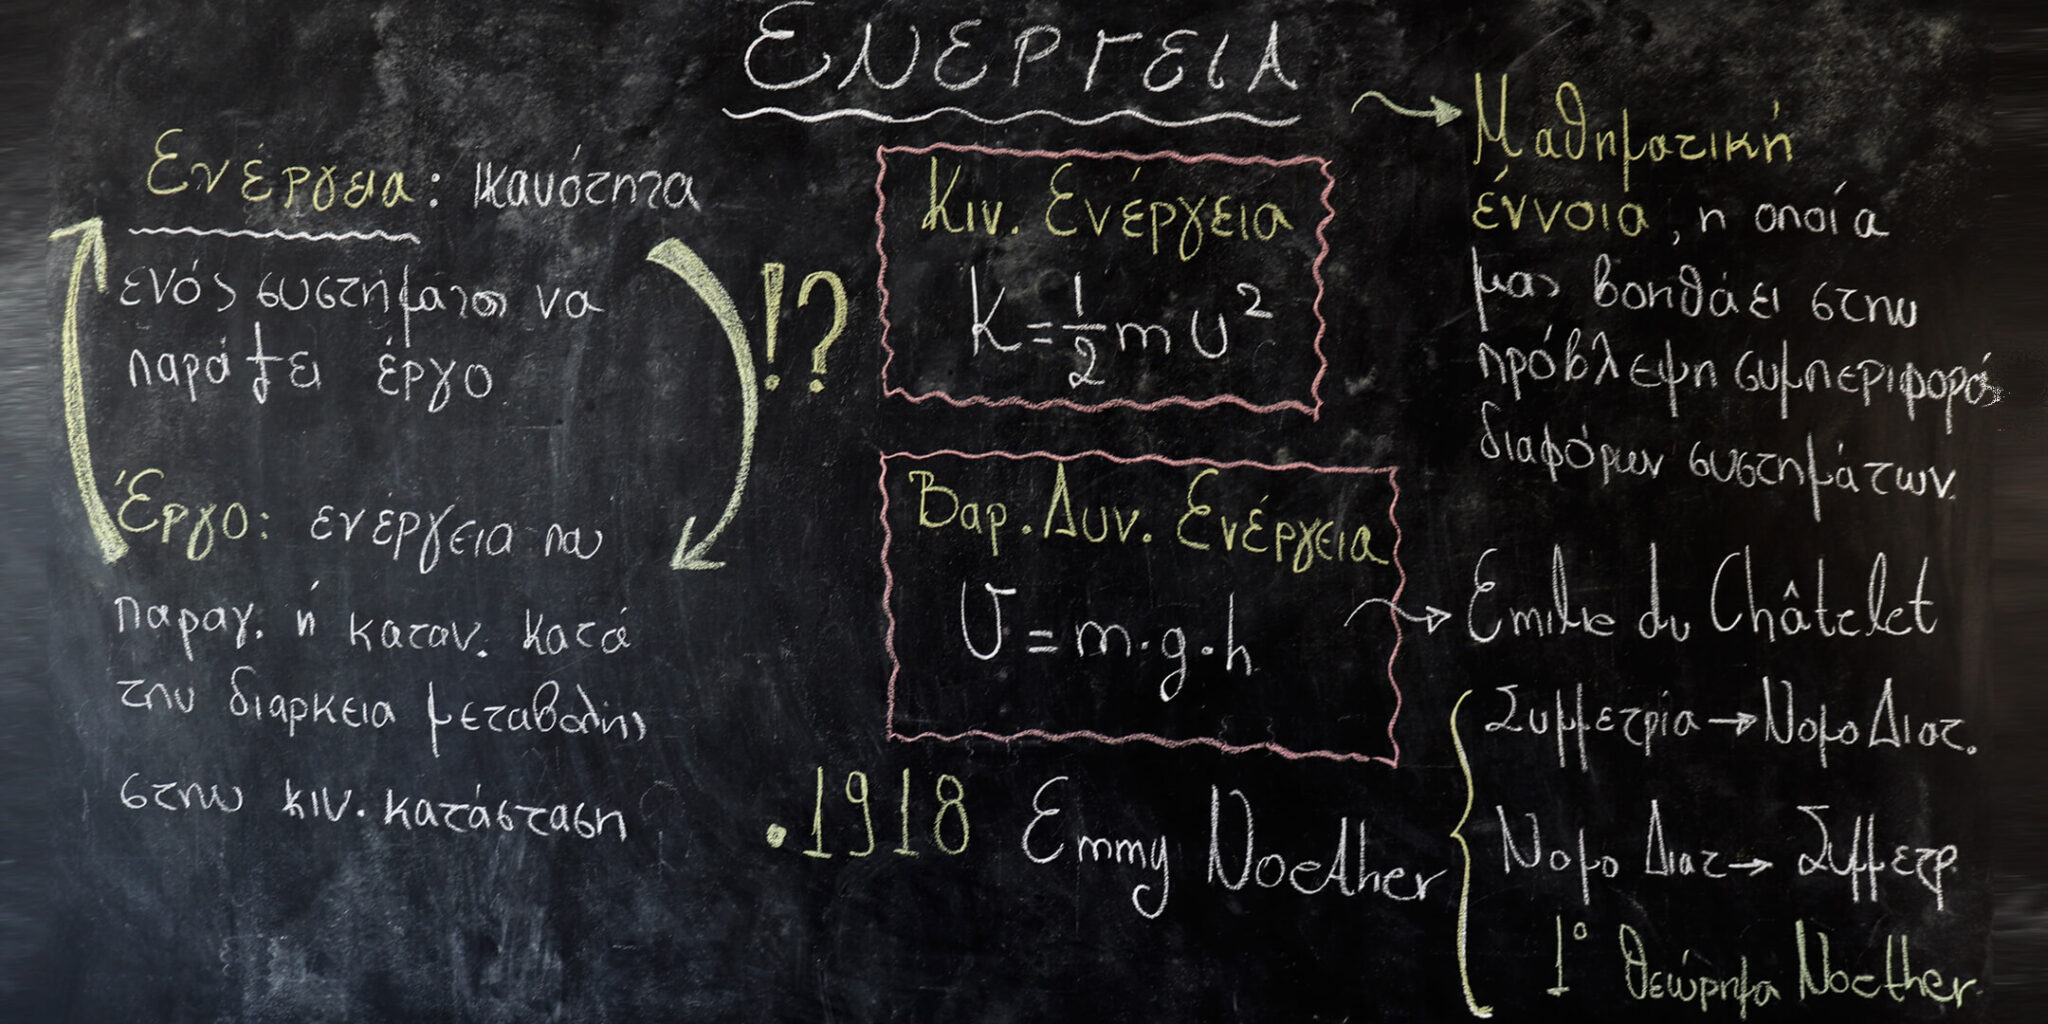 ΕΝΕΡΓΕΙΑ
Ενέργεια: Ικανότητα
ενός συστήματος να
παράξει έργο
Έργο: ενέργεια που
παραγ. ή καταν. κατά
την διάρκεια μεταβολής
στην κιν. κατάσταση
!?
Κιν. Ενέργεια
K = 1/2 m υ²
Βαρ. Δυν. Ενέργεια
U = m·g·h
Μαθηματική
έννοια, η οποία
μας βοηθάει στην
πρόβλεψη συμπεριφοράς
διαφόρων συστημάτων
Emilie du Châtelet
.1918 Emmy Noether
Συμμετρία → Νομο Διατ.
Νομο Διατ → Συμμετρ
1° Θεώρημα Noether